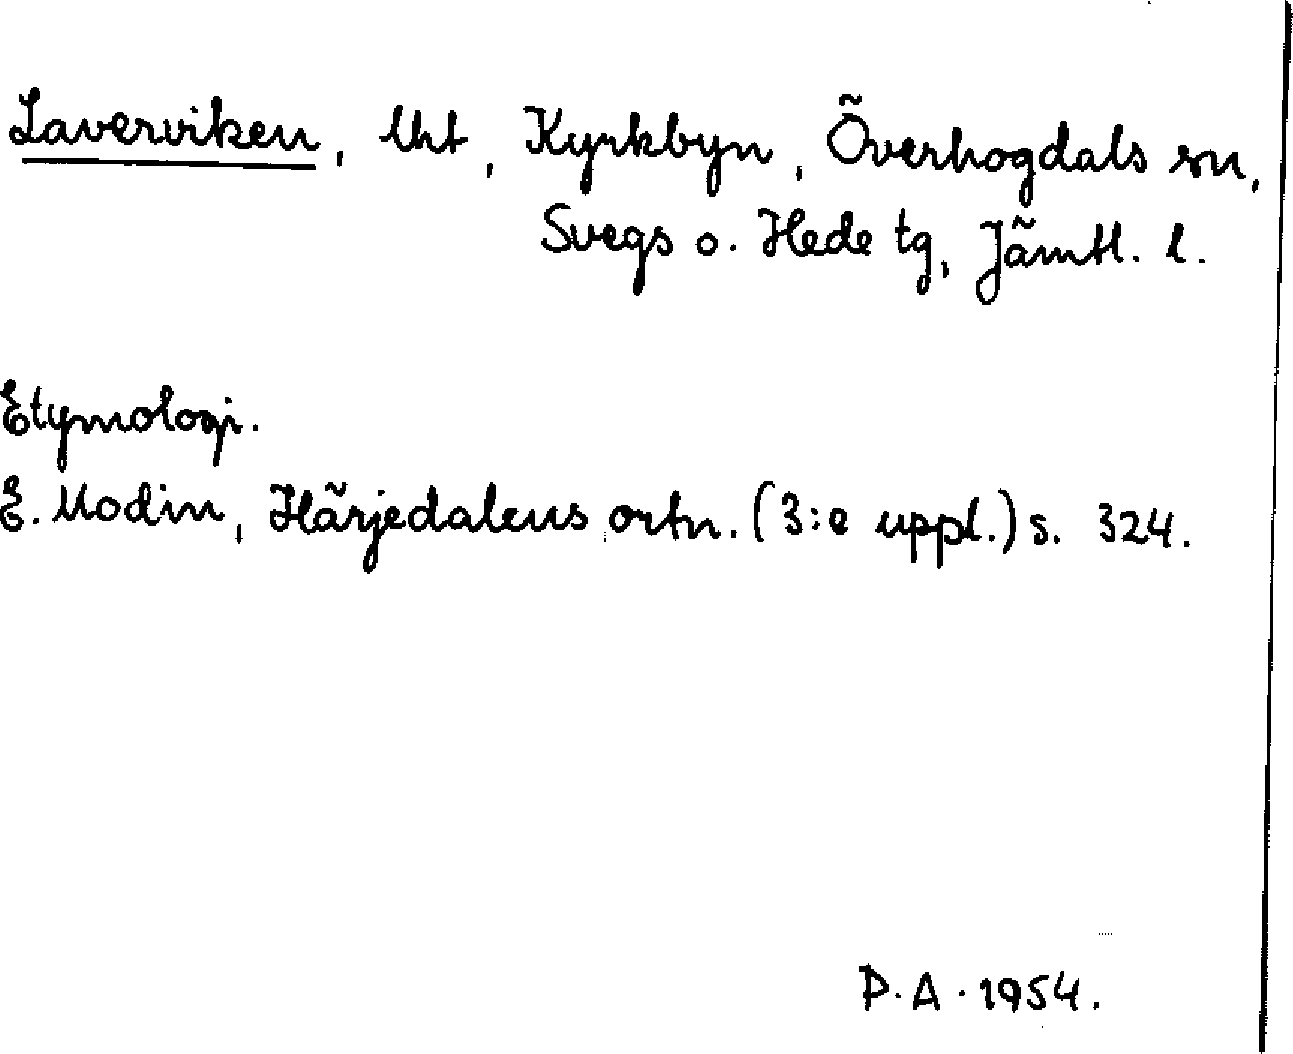 Laverviken, Uht, Kyrkbyn, Överhogdals sn,
Svegs o. Hede tg, Jämtl. l.
Etymologi.
E. Modin, Härjedalens ortn. (3:e uppl.) s. 324.
P.A. 1954.